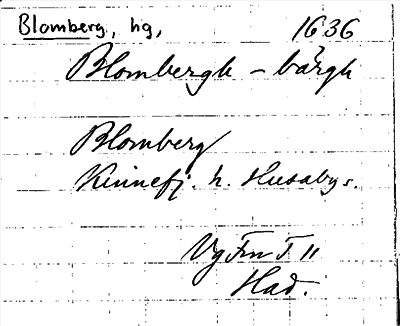 Blomberg, hg, 1636
Blombergh - bärgh
Blomberg
Kinnefj. h. Husaby s.
Vg Frn I 11
Had.